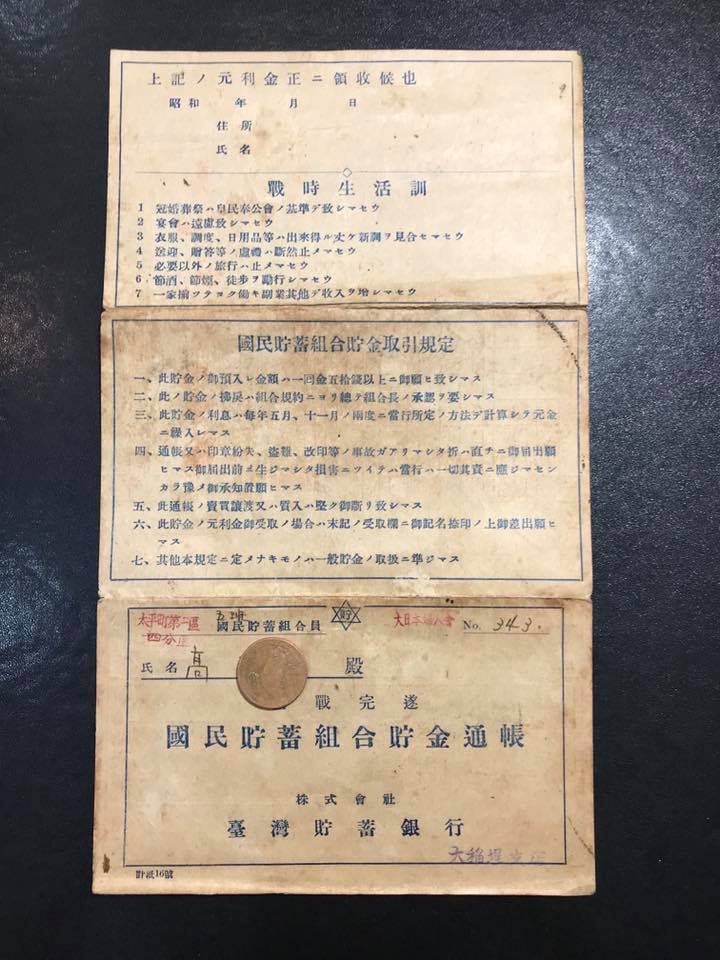 上記ノ元利金正ニ領收候也
昭和 年 月 日
住所
氏名
戰時生活訓
1 冠婚葬祭ハ皇民奉公會ノ基準デ致シマセウ
2 宴會ハ遠慮致シマセウ
3 衣服、調度、日用品等ハ出來得ル丈ケ新調ヲ見合セマセウ
4 送迎、贈答等ノ虛禮ハ斷然止メマセウ
5 必要以外ノ旅行ハ止メマセウ
6 節酒、節煙、徒步ヲ勵行シマセウ
7 一家揃ツテヨク働キ副業其他デ收入ヲ增シマセウ
國民貯蓄組合貯金取引規定
一、此貯金ノ御預入レ金額ハ一回金五拾錢以上ニ御願ヒ致シマス
二、此ノ貯金ノ拂戾ハ組合規約ニヨリ總テ組合長ノ承認ヲ要シマス
三、此貯金ノ利息ハ每年五月、十一月ノ兩度ニ當行所定ノ方法デ計算シテ元金
ニ繰入レマス
四、通帳又ハ印章紛失、盜難、改印等ノ事故ガアリマシタ折ハ直チニ御屆出願
ヒマス御屆出前ニ生ジマシタ損害ニツイテハ當行ハ一切其責ニ應ジマセン
カラ豫メ御承知置願ヒマス
五、此通帳ノ賣買讓渡又ハ質入ハ堅ク御斷リ致シマス
六、此貯金ノ元利金御受取ノ場合ハ末記ノ受取欄ニ御記名捺印ノ上御差出願ヒ
マス
七、其他本規定ニ定メナキモノハ一般貯金ノ取扱ニ準ジマス
太平町第二區
國民貯蓄組合員
貯
大日本婦人會
No. 343.
氏名 高 殿
戰完遂
國民貯蓄組合貯金通帳
株式會社
臺灣貯蓄銀行
大稻埕支店
貯紙16號